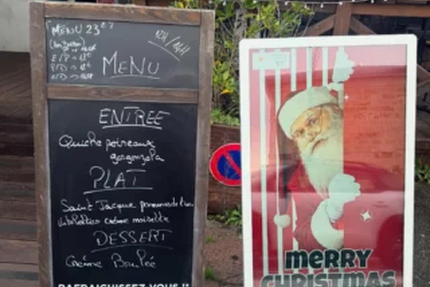 MENU 23€
12H/14H
MENU
ENTREE
Quiche poireaux
gorgonzola
PLAT
Saint Jacque
crème noisette
DESSERT
Crème Brulée
RAFRAICHISSEZ-VOUS !!
MERRY
CHRISTMAS